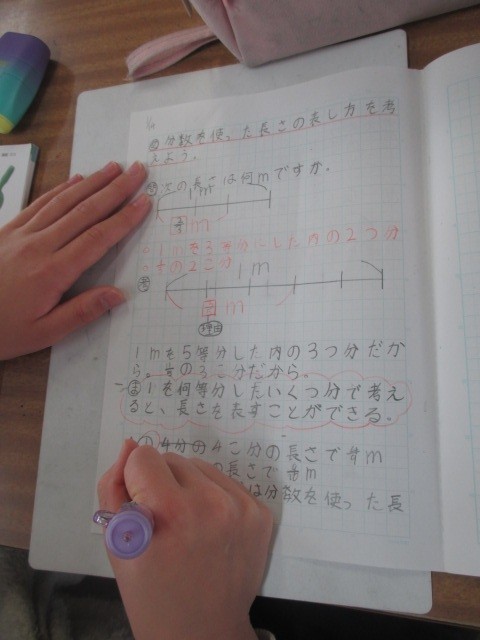 め分数を使った長さの表し方を考
えよう。
次の長さは何mですか。
1m
m
1mを3等分した内の2つ分
の2こ分
1m
m
理由
1mを5等分した内の3つ分だか
ら。の3こ分だから。
ま1を何等分したいくつ分で考え
ると、長さを表すことができる。
4分の4こ分の長さでm
の長さでm
は分数を使った長